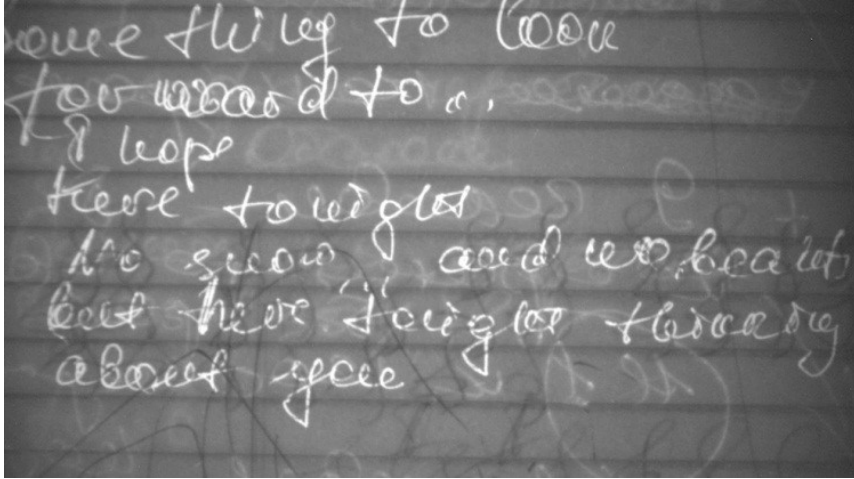 some thing to look
forward to...
I hope
here tonight
No snow and no beauty
but here tonight thinking
about you